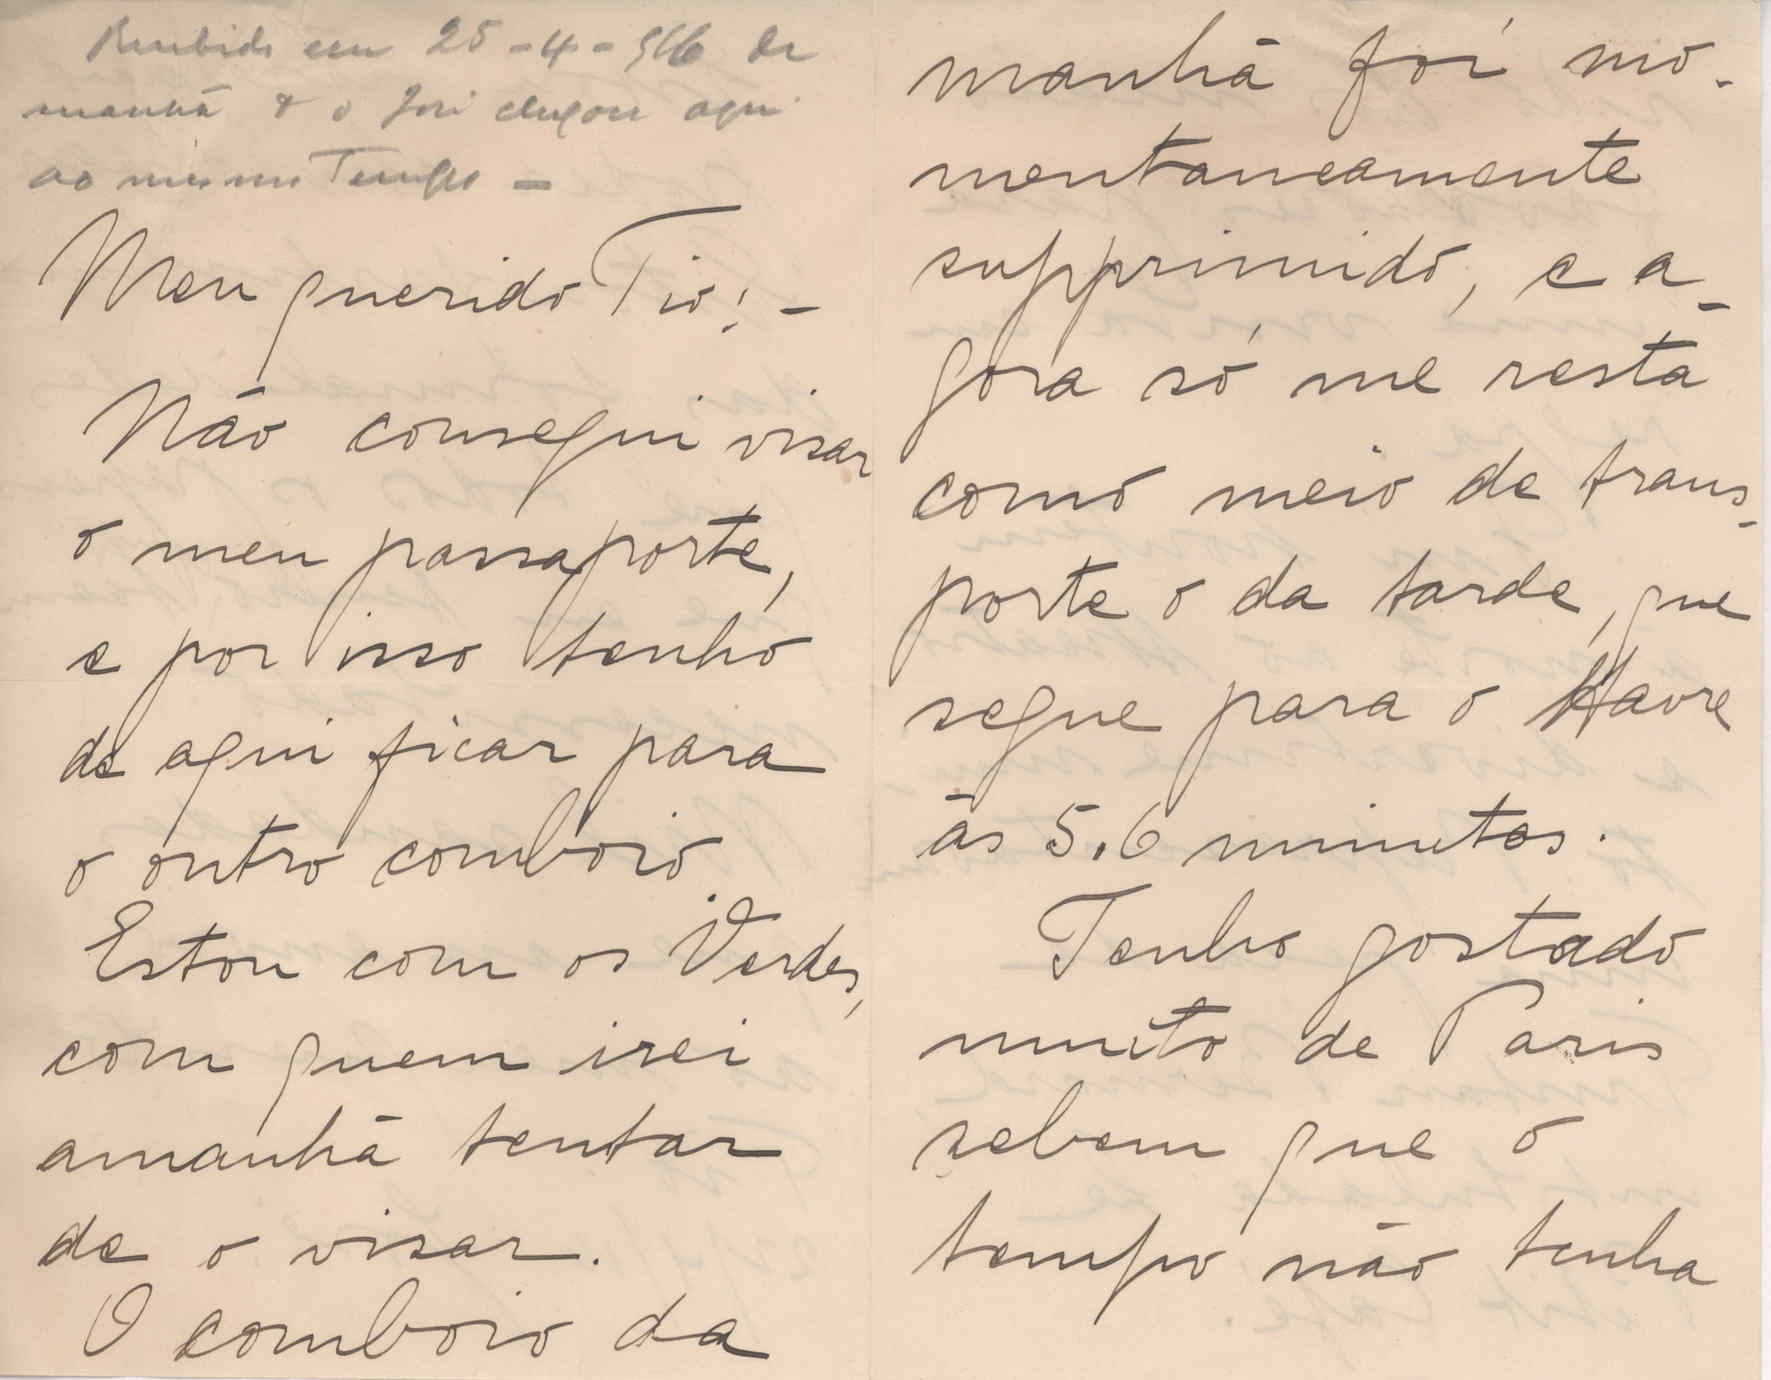 Recebido em 25-4-916 de
manhã & o José chegou aqui
ao mesmo Tempo -
Meu querido Tio! -
Não consegui visar
o meu passaporte,
e por isso tenho
de aqui ficar para
o outro comboio.
Estou com os Verdes,
com quem irei
amanhã tentar
de o visar.
O comboio da
manhã foi mo-
mentaneamente
supprimido, e a-
gora só me resta
como meio de trans-
porte o da tarde, que
segue para o Havre
ás 5.6 minutos.
Tenho gostado
muito de Paris
sebem que o
tempo não tenha